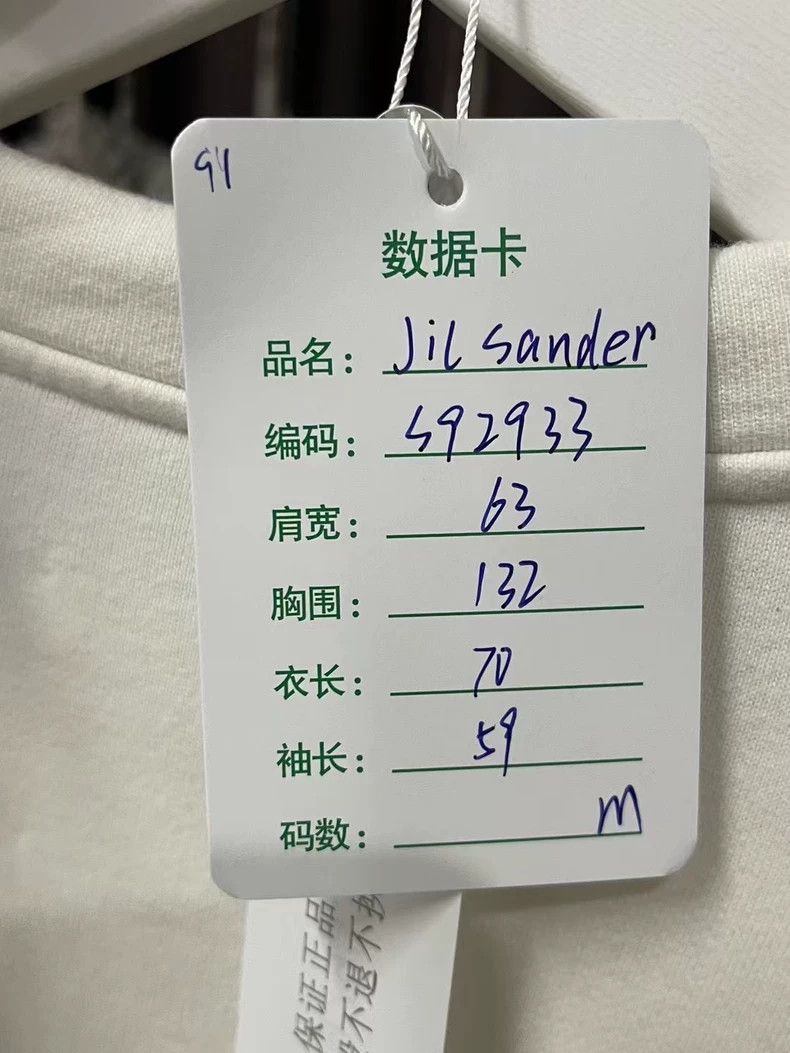 94
数据卡
品名: Jil sander
编码: S92933
肩宽: 63
胸围: 132
衣长: 70
袖长: 59
码数: m
保证正品
不退不换